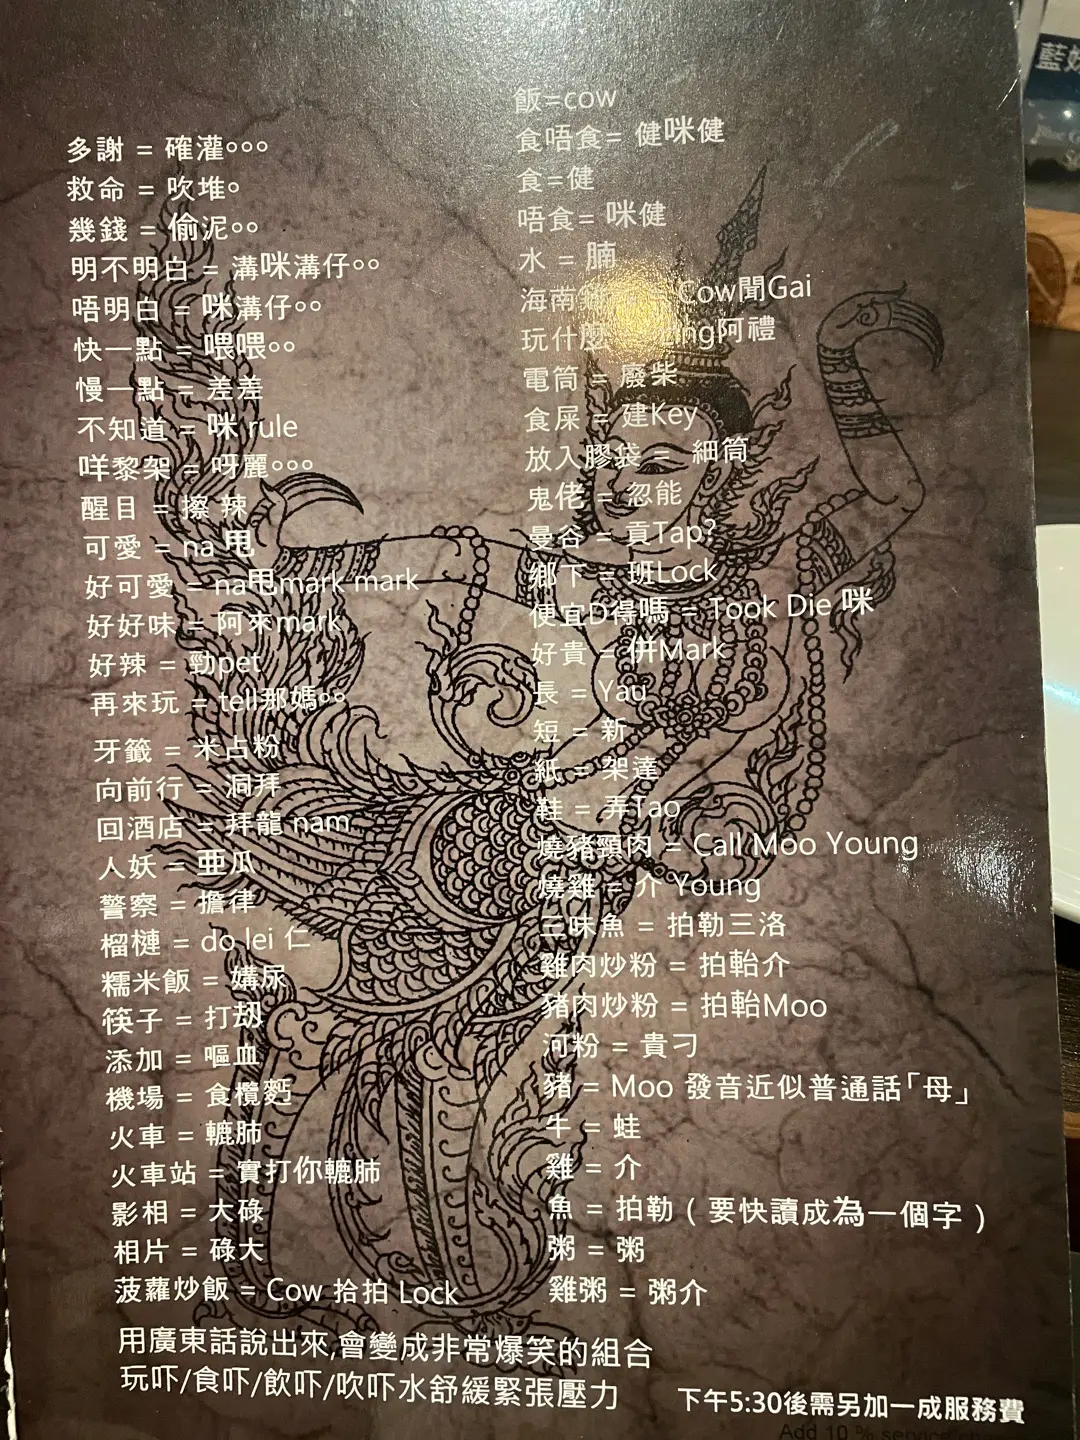 多謝 = 確灌°°°
救命 = 吹堆°
幾錢 = 偷泥°°
明不明白 = 溝咪溝仔°°
唔明白 = 咪溝仔°°
快一點 = 喂喂°°
慢一點 = 差差
不知道 = 咪 rule
咩黎架 = 呀麗°°°
醒目 = 擦 辣
可愛 = na 甩
好可愛 = na甩mark mark
好好味 = 阿來mark
好辣 = 勁pet
再來玩 = tell那媽°°
牙籤 = 米占粉
向前行 = 洞拜
回酒店 = 拜龍 nam
人妖 = 亜瓜
警察 = 擔律
榴槤 = do lei 仁
糯米飯 = 媾尿
筷子 = 打刼
添加 = 嘔血
機場 = 食欖麪
火車 = 轆肺
火車站 = 實打你轆肺
影相 = 大碌
相片 = 碌大
菠蘿炒飯 = Cow 拾拍 Lock
飯=cow
食唔食= 健咪健
食=健
唔食= 咪健
水 = 腩
海南 Cow聞Gai
玩什麼 阿禮
電筒 = 廢柴
食屎 = 建Key
放入膠袋 = 細筒
鬼佬 = 忽能
曼谷 = 貢Tap?
鄉下 = 班Lock
便宜D得嗎 = Took Die 咪
好貴 = 併Mark
長 = Yau
短 = 新
紙 = 架達
鞋 = 弄Tao
燒豬頸肉 = Call Moo Young
燒雞 = 介 Young
三味魚 = 拍勒三洛
雞肉炒粉 = 拍軩介
豬肉炒粉 = 拍軩Moo
河粉 = 貴刁
豬 = Moo 發音近似普通話「母」
牛 = 蛙
雞 = 介
魚 = 拍勒 ( 要快讀成為一個字 )
粥 = 粥
雞粥 = 粥介
用廣東話說出來,會變成非常爆笑的組合
玩吓/食吓/飲吓/吹吓水舒緩緊張壓力
下午5:30後需另加一成服務費
Add 10 % service charge
藍妹